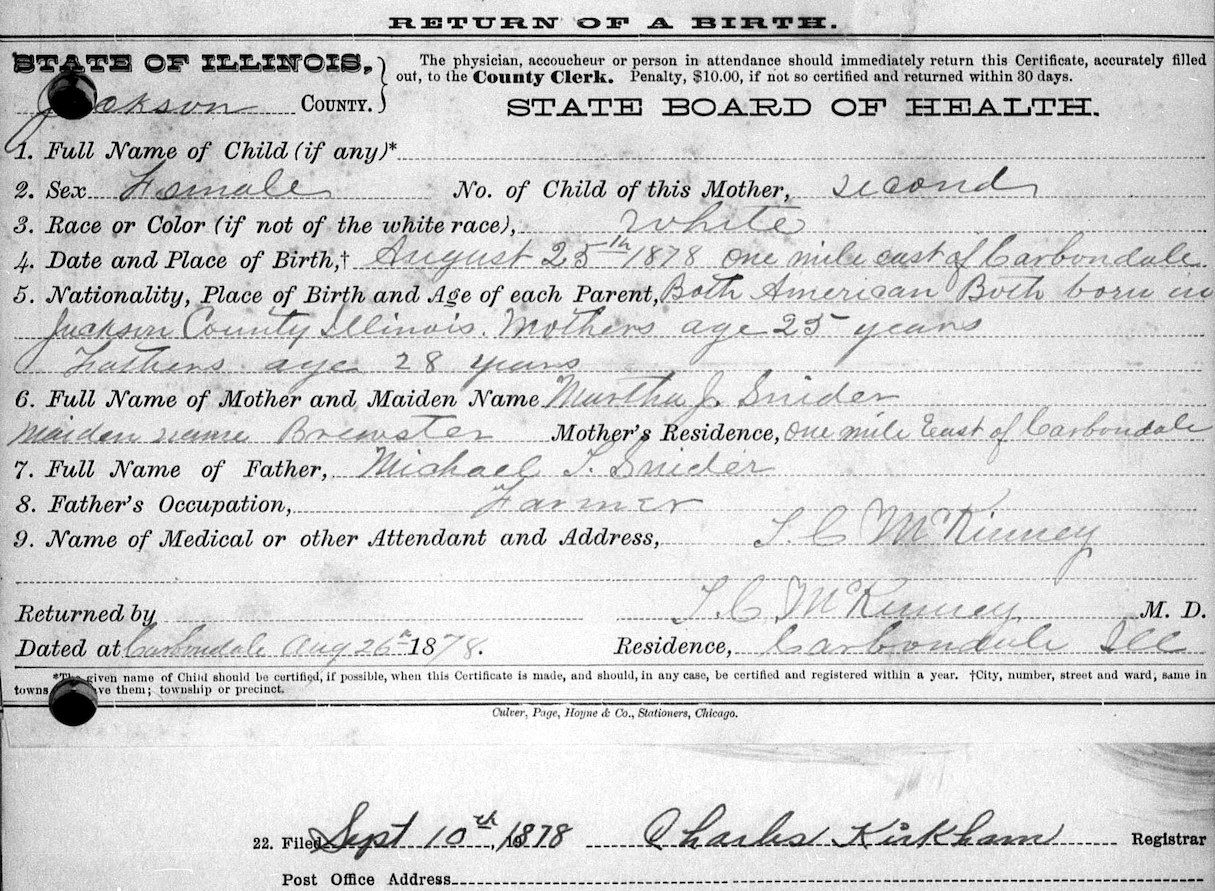 RETURN OF A BIRTH.
STATE OF ILLINOIS,
Jackson COUNTY.
The physician, accoucheur or person in attendance should immediately return this Certificate, accurately filled
out, to the County Clerk. Penalty, $10.00, if not so certified and returned within 30 days.
STATE BOARD OF HEALTH.
1. Full Name of Child (if any)*
2. Sex Female No. of Child of this Mother, second
3. Race or Color (if not of the white race), white
4. Date and Place of Birth,† August 25th 1878 one mile east of Carbondale
5. Nationality, Place of Birth and Age of each Parent, Both American Both born in
Jackson County Illinois. Mothers age 25 years
Fathers age 28 years
6. Full Name of Mother and Maiden Name Martha J. Snider
Maiden name Brewster Mother's Residence, one mile East of Carbondale
7. Full Name of Father, Michael Snider
8. Father's Occupation, Farmer
9. Name of Medical or other Attendant and Address, McKinney
McKinney M. D.
Returned by
Dated at Carbondale Aug 26th 1878. Residence, Carbondale Ill
*The given name of Child should be certified, if possible, when this Certificate is made, and should, in any case, be certified and registered within a year. †City, number, street and ward, same in
towns ve them; township or precinct.
Culver, Page, Hoyne & Co., Stationers, Chicago.
22. Filed Sept 10th, 1878 Charles Kirkham Registrar
Post Office Address